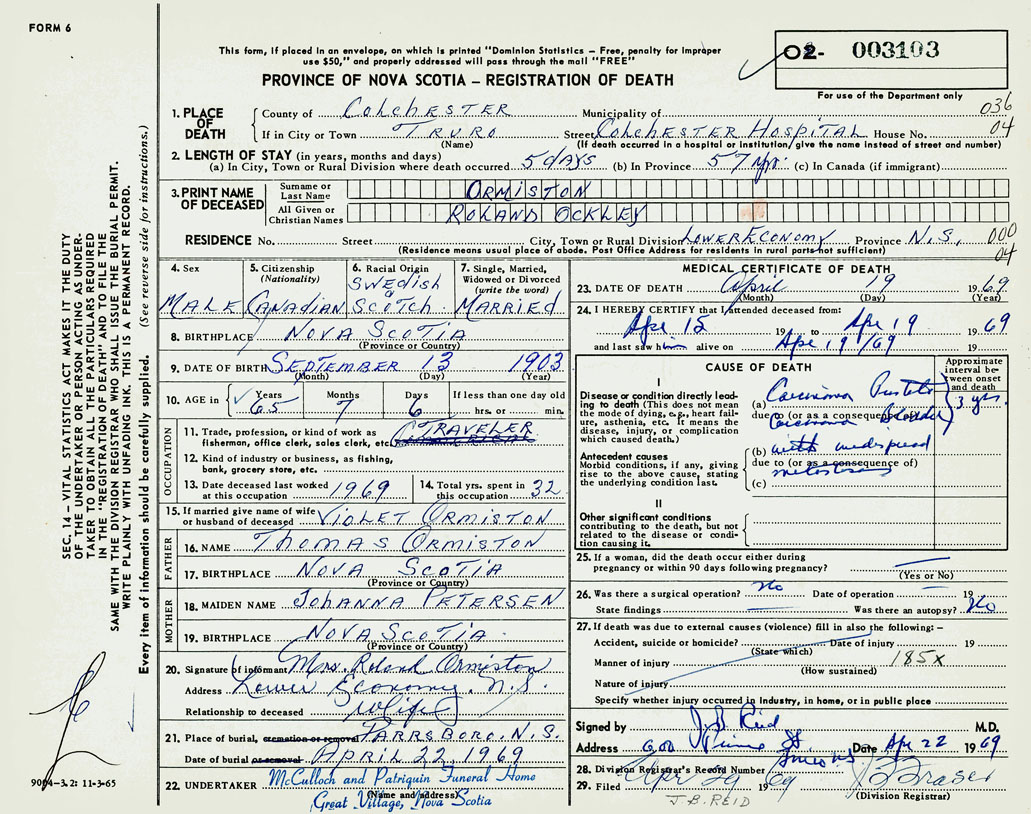 FORM 6
This form, if placed in an envelope, on which is printed "Dominion Statistics – Free, penalty for improper
use $50," and properly addressed will pass through the mail "FREE"
PROVINCE OF NOVA SCOTIA – REGISTRATION OF DEATH
02- 003103
For use of the Department only
036
04
1. PLACE OF DEATH
County of COLCHESTER Municipality of
If in City or Town TRURO Street COLCHESTER HOSPITAL House No.
(Name) (If death occurred in a hospital or institution give the name instead of street and number)
2. LENGTH OF STAY (in years, months and days)
(a) In City, Town or Rural Division where death occurred 5 days (b) In Province 57 yrs. (c) In Canada (if immigrant)
3. PRINT NAME OF DECEASED
Surname or Last Name ORMISTON
All Given or Christian Names ROLAND OCKLEY
RESIDENCE No. Street City, Town or Rural Division LOWER ECONOMY Province N.S. 000
(Residence means usual place of abode. Post Office Address for residents in rural parts not sufficient) 04
4. Sex MALE
5. Citizenship (Nationality) CANADIAN
6. Racial Origin SWEDISH SCOTCH
7. Single, Married, Widowed or Divorced (write the word) MARRIED
8. BIRTHPLACE NOVA SCOTIA
(Province or Country)
9. DATE OF BIRTH SEPTEMBER 13 1903
(Month) (Day) (Year)
10. AGE in Years 65 Months 7 Days 6 If less than one day old hrs. or min.
OCCUPATION
11. Trade, profession, or kind of work as fisherman, office clerk, sales clerk, etc. TRAVELER
12. Kind of industry or business, as fishing, bank, grocery store, etc.
13. Date deceased last worked at this occupation 1969
14. Total yrs. spent in this occupation 32
15. If married give name of wife or husband of deceased VIOLET ORMISTON
FATHER
16. NAME THOMAS ORMISTON
17. BIRTHPLACE NOVA SCOTIA
(Province or Country)
MOTHER
18. MAIDEN NAME JOHANNA PETERSEN
19. BIRTHPLACE NOVA SCOTIA
(Province or Country)
20. Signature of informant Mrs. Roland Ormiston
Address Lower Economy, N.S.
Relationship to deceased Wife
21. Place of burial, cremation or removal PARRSBORO, N.S.
Date of burial or removal APRIL 22, 1969
22. UNDERTAKER McCulloch and Patriquin Funeral Home
(Name and address)
Great Village, Nova Scotia
MEDICAL CERTIFICATE OF DEATH
23. DATE OF DEATH April 19 1969
(Month) (Day) (Year)
24. I HEREBY CERTIFY that I attended deceased from:
Apr 15 19 to Apr 19 1969
and last saw him alive on Apr 19/69 19
CAUSE OF DEATH
Approximate interval between onset and death
I
Disease or condition directly leading to death (This does not mean the mode of dying, e.g., heart failure, asthenia, etc. It means the disease, injury, or complication which caused death.)
(a) Carcinoma Prostate
3 yrs.
due to (or as a consequence of)
Carcinoma Bladder
Antecedent causes
Morbid conditions, if any, giving rise to the above cause, stating the underlying condition last.
(b) with widespread
due to (or as a consequence of)
(c)
II
Other significant conditions contributing to the death, but not related to the disease or condition causing it.
25. If a woman, did the death occur either during pregnancy or within 90 days following pregnancy?
(Yes or No)
26. Was there a surgical operation? No Date of operation 19
State findings Was there an autopsy? No
27. If death was due to external causes (violence) fill in also the following: –
Accident, suicide or homicide? Date of injury 19
(State which)
Manner of injury 185X
(How sustained)
Nature of injury
Specify whether injury occurred in industry, in home, or in public place
Signed by J.B. Reid M.D.
Address Prince St Date Apr 22 1969
Truro NS
28. Division Registrar's Record Number
29. Filed Apr 29 1969 Fraser
J.B. REID (Division Registrar)
SEC. 14 – VITAL STATISTICS ACT MAKES IT THE DUTY
OF THE UNDERTAKER OR PERSON ACTING AS UNDER-
TAKER TO OBTAIN ALL THE PARTICULARS REQUIRED
IN THE "REGISTRATION OF DEATH" AND TO FILE THE
SAME WITH THE DIVISION REGISTRAR WHO SHALL ISSUE THE BURIAL PERMIT.
WRITE PLAINLY WITH UNFADING INK. THIS IS A PERMANENT RECORD.
Every item of information should be carefully supplied. (See reverse side for instructions.)
9004-3.2: 11-3-65